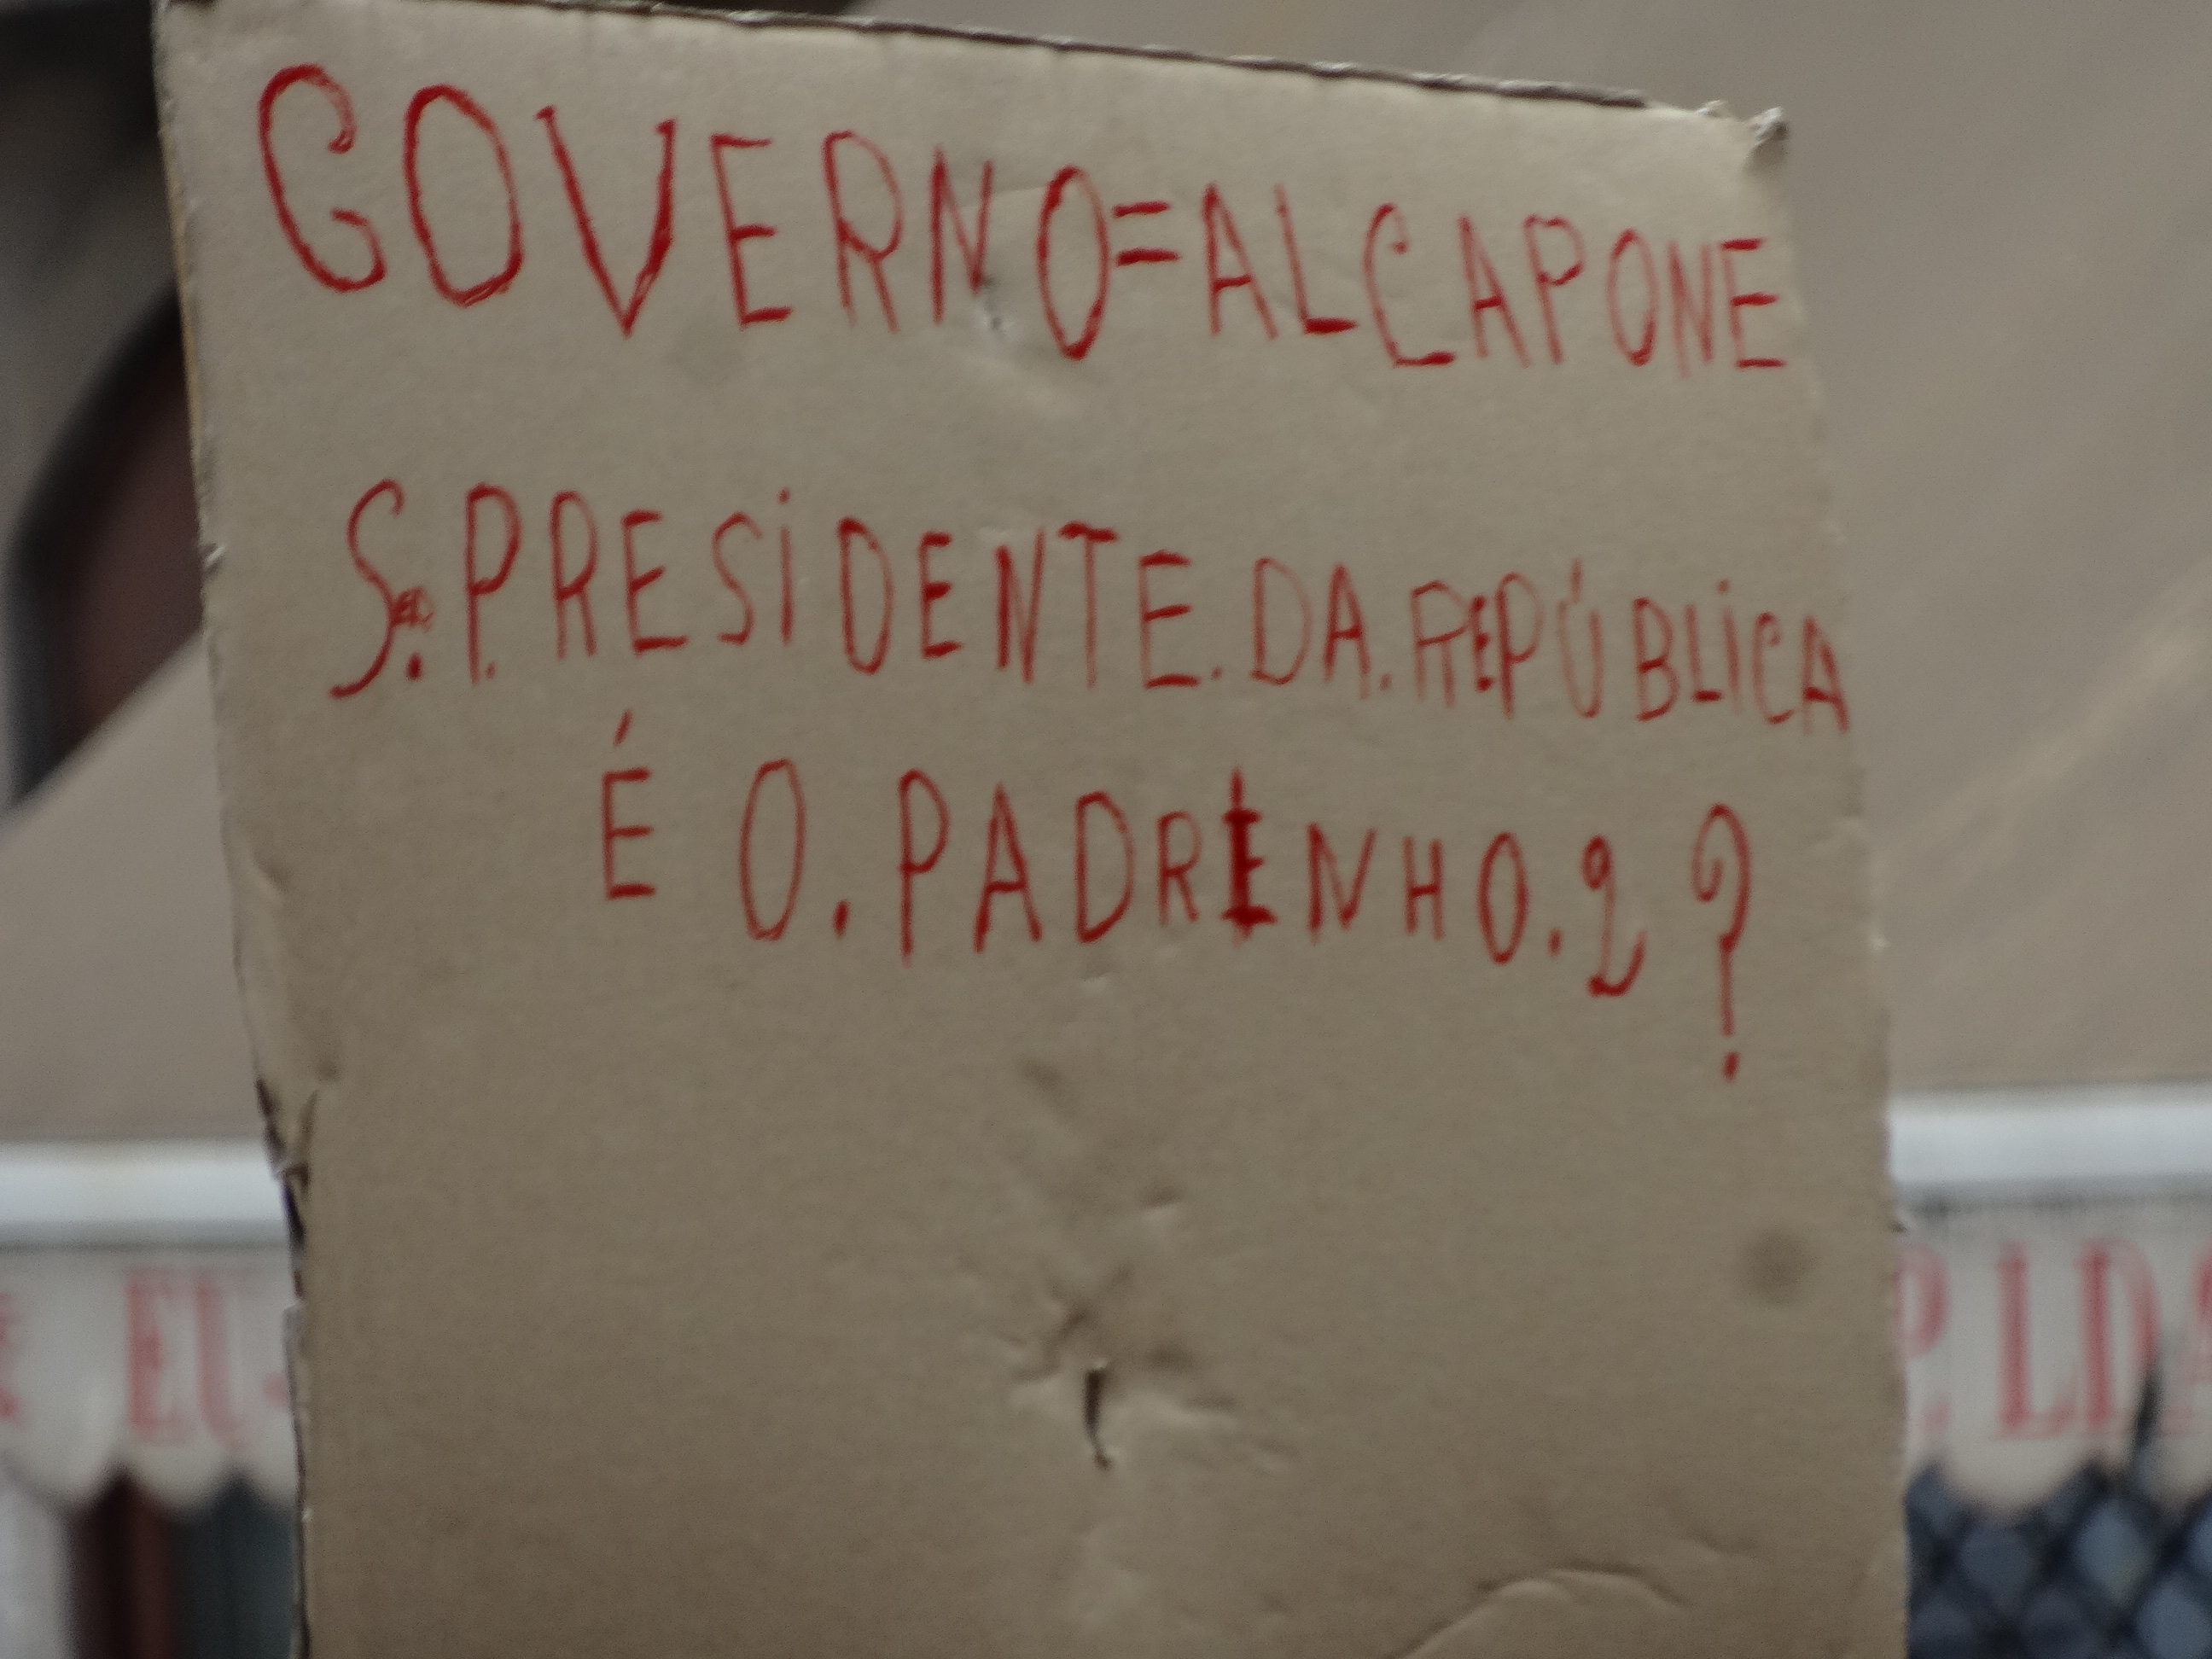 GOVERNO=ALCAPONE
Sr. PRESIDENTE.DA.REPÚBLICA
É O.PADRINHO.2?
EU
LDA